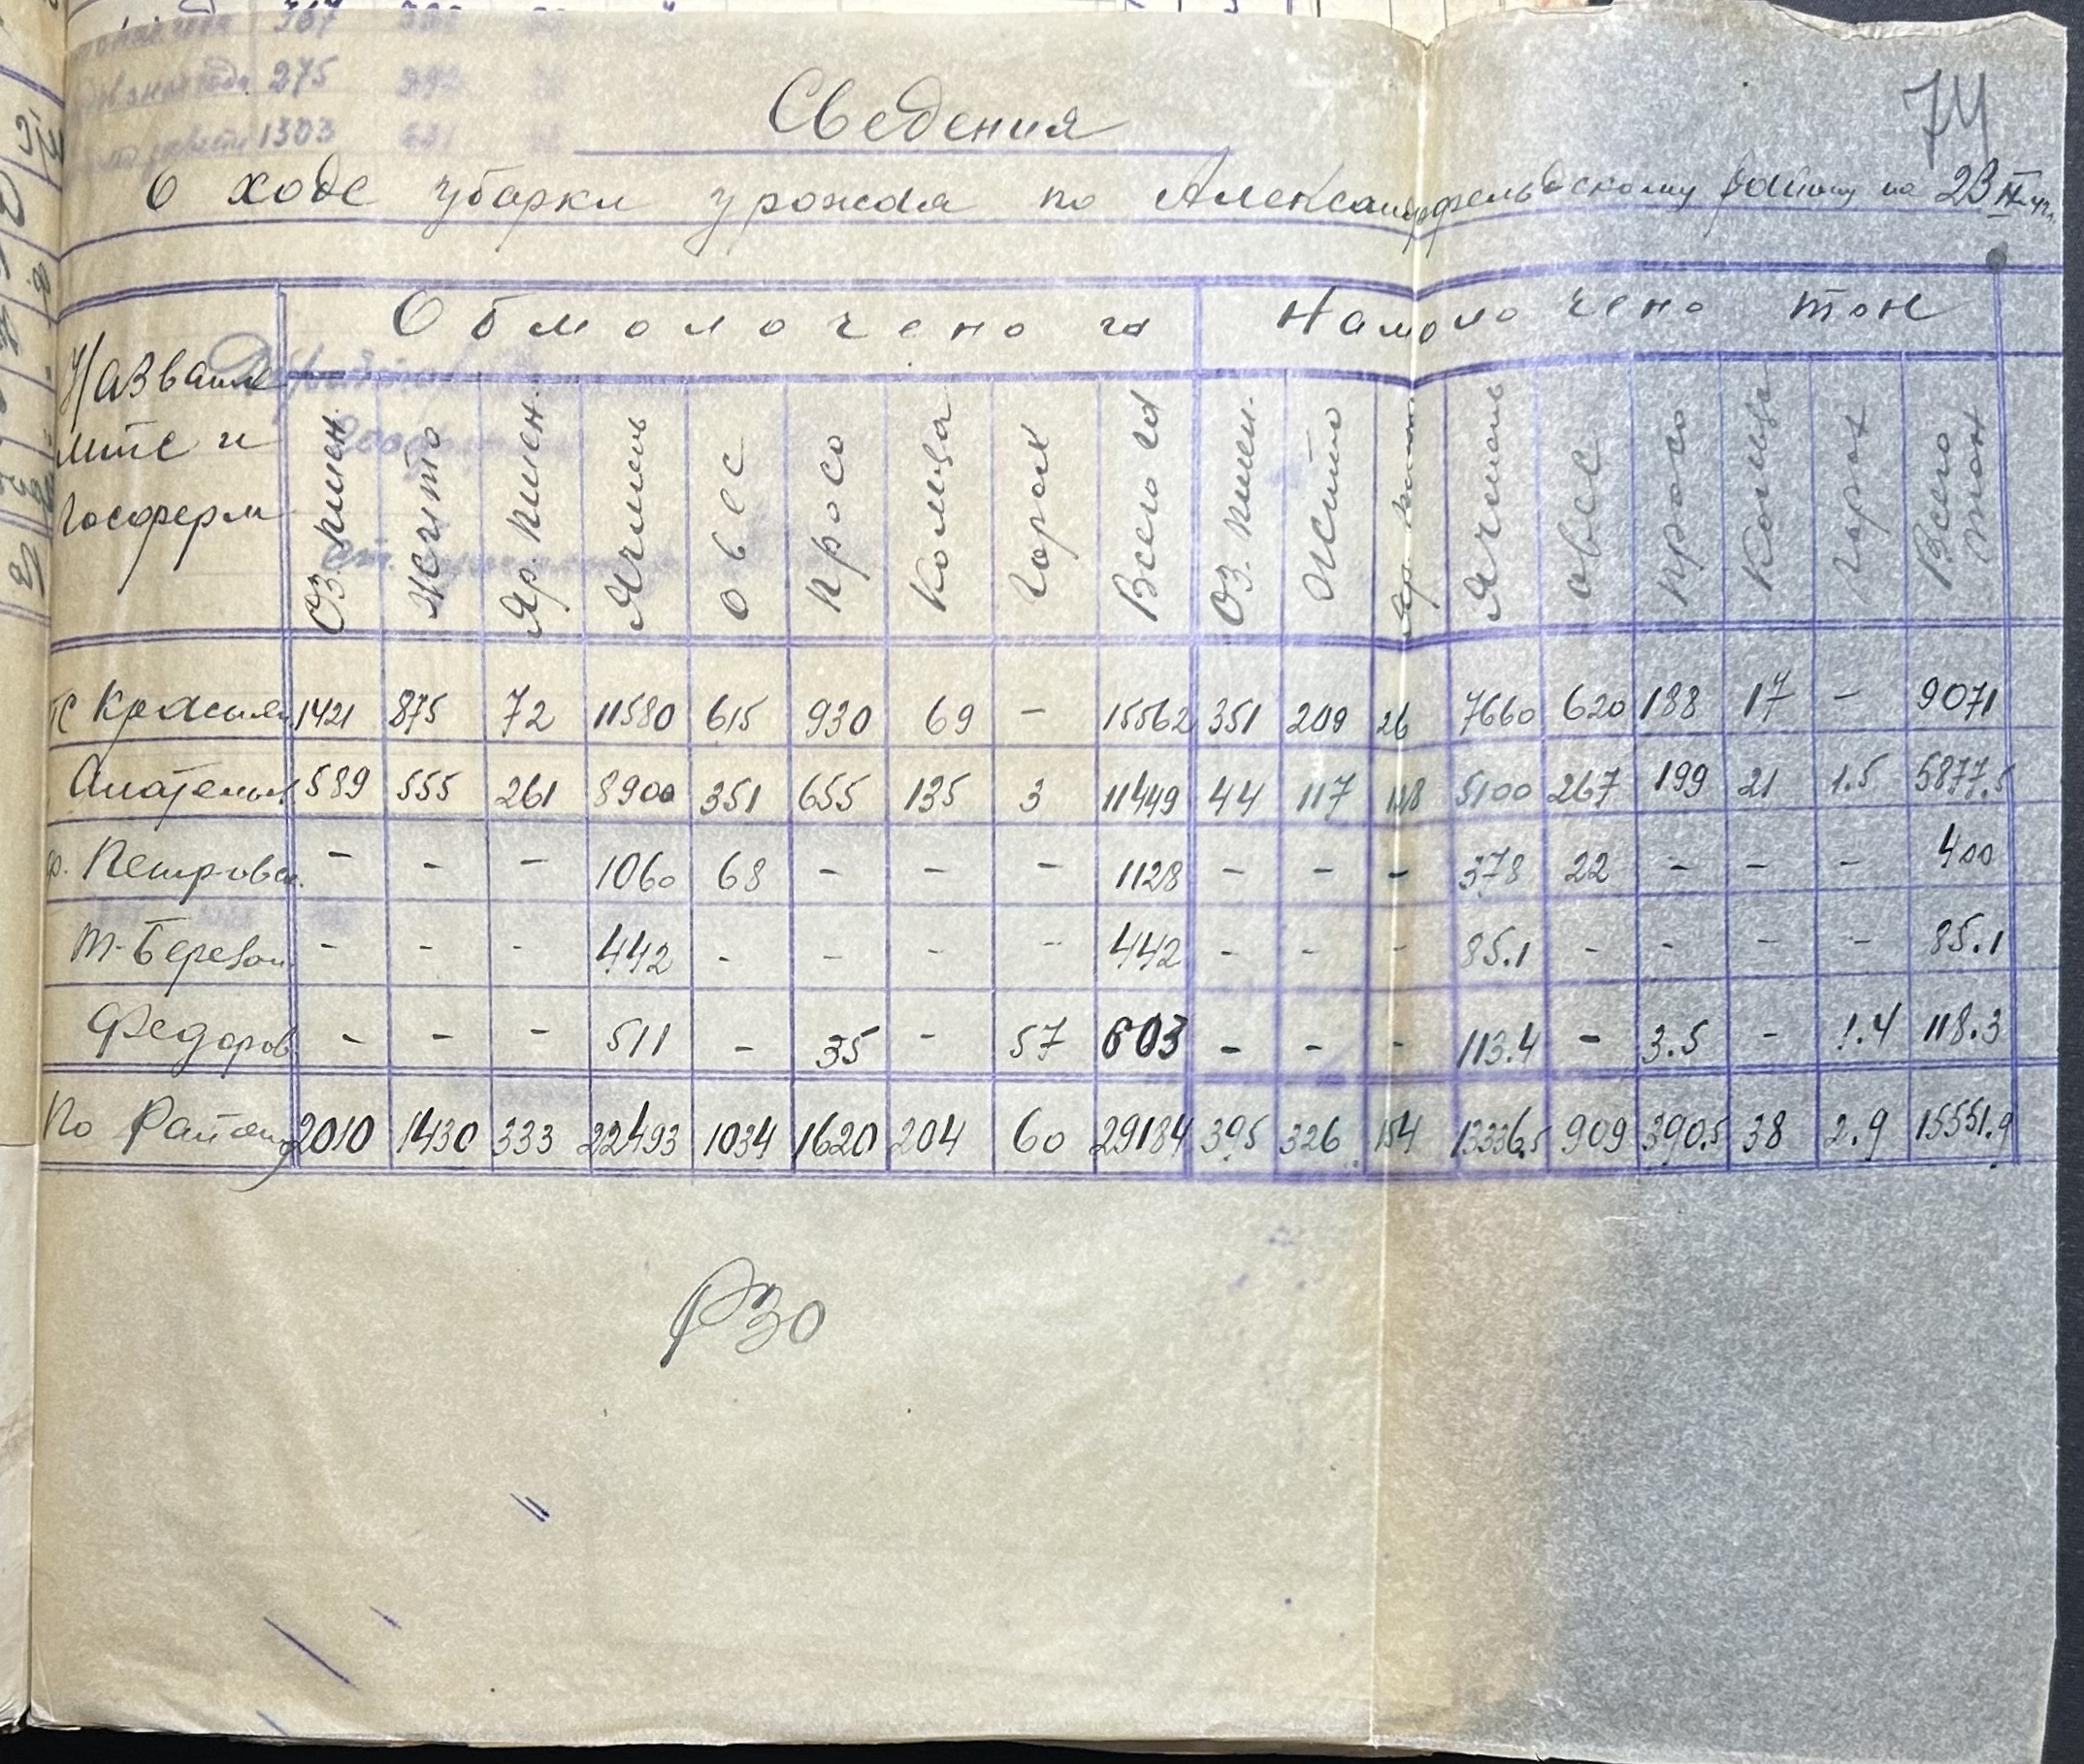 74
Сведения
о ходе уборки урожая по Александрфельдскому району на 23
Название мтс и госферм | Обмолочено га | Намолочено тон
Оз. пшен. | Жито | Яр. пшен. | Ячмень | Овес | Просо | Колиза | Горох | Всего га | Оз. пшен. | Жито | Яр. пшен. | Ячмень | Овес | Просо | Колиза | Горох | Всего тон
1421 | 875 | 72 | 11580 | 615 | 930 | 69 | - | 15562 | 351 | 209 | 26 | 7660 | 620 | 188 | 17 | - | 9071
589 | 555 | 261 | 8900 | 351 | 655 | 135 | 3 | 11449 | 44 | 117 | 128 | 5100 | 267 | 199 | 21 | 1.5 | 5877.5
Петровск. | - | - | - | 1060 | 68 | - | - | - | 1128 | - | - | - | 378 | 22 | - | - | - | 400
Т-Березан | - | - | - | 442 | - | - | - | - | 442 | - | - | - | 85.1 | - | - | - | - | 85.1
Федоров | - | - | - | 511 | - | 35 | - | 57 | 603 | - | - | - | 113.4 | - | 3.5 | - | 1.4 | 118.3
По Району | 2010 | 1430 | 333 | 22493 | 1034 | 1620 | 204 | 60 | 29184 | 395 | 326 | 154 | 13336.5 | 909 | 390.5 | 38 | 2.9 | 15551.9
РЗО